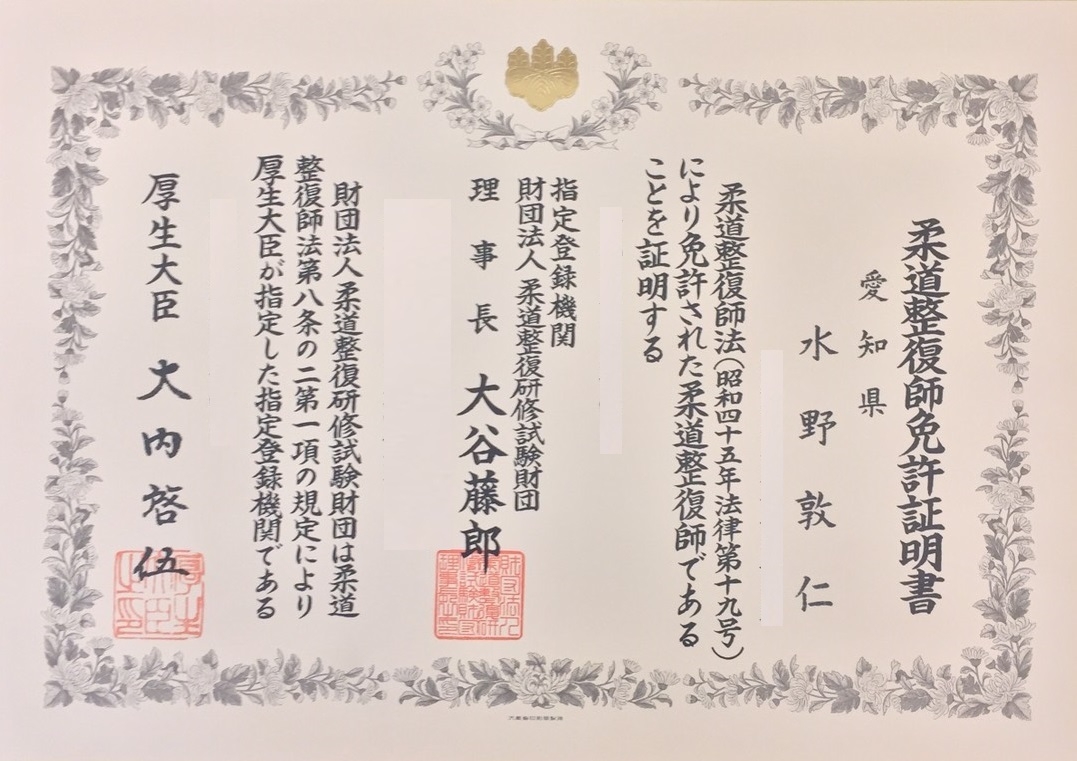 柔道整復師免許証明書
愛知県
水野敦仁
柔道整復師法(昭和四十五年法律第十九号)
により免許された柔道整復師である
ことを証明する
指定登録機関
財団法人 柔道整復研修試験財団
理事長 大谷藤郎
財団法人柔道整復研修試験財団は柔道
整復師法第八条の二第一項の規定により
厚生大臣が指定した指定登録機関である
厚生大臣 大内啓伍